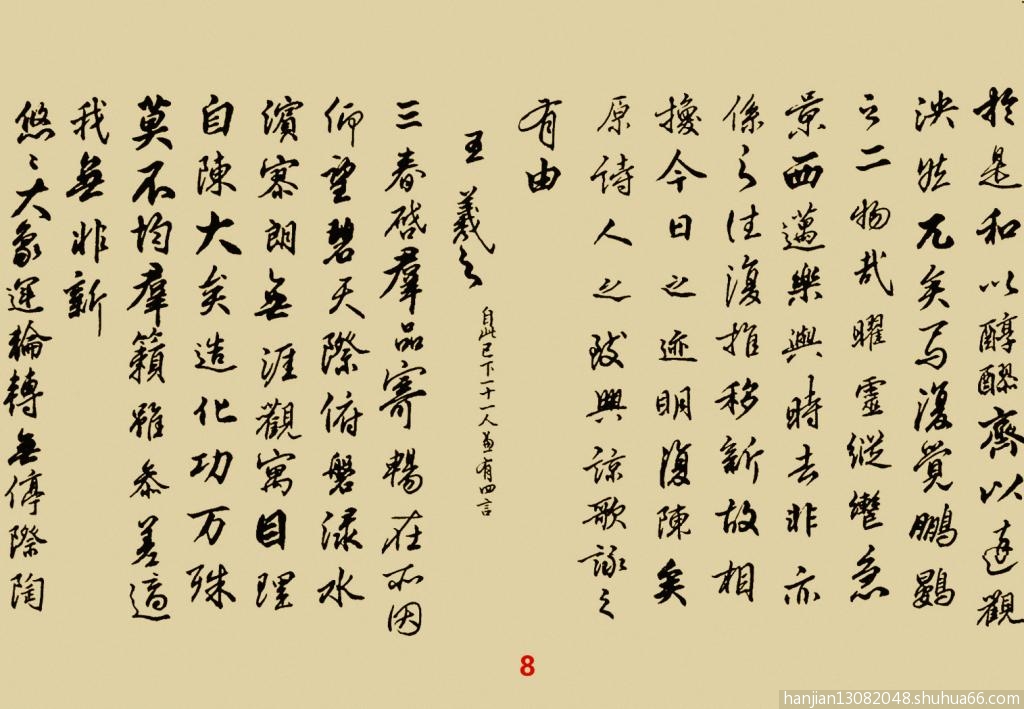 於是和以醇醪齊以達觀
泱然兀矣焉復覺鵬鷃
之二物哉曜靈縱轡急
景西邁樂與時去非亦
係之往復推移新故相
換今日之迹明復陳矣
原詩人之致興諒歌詠之
有由
王羲之 自此已下一十一人兼有四言
三春啓羣品寄暢在所因
仰望碧天際俯磐淥水
濱寥朗無涯觀寓目理
自陳大矣造化功万殊
莫不均羣籟雖參差適
我無非新
悠〻大象運輪轉無停際陶
8
hanjian13082048.shuhua66.com